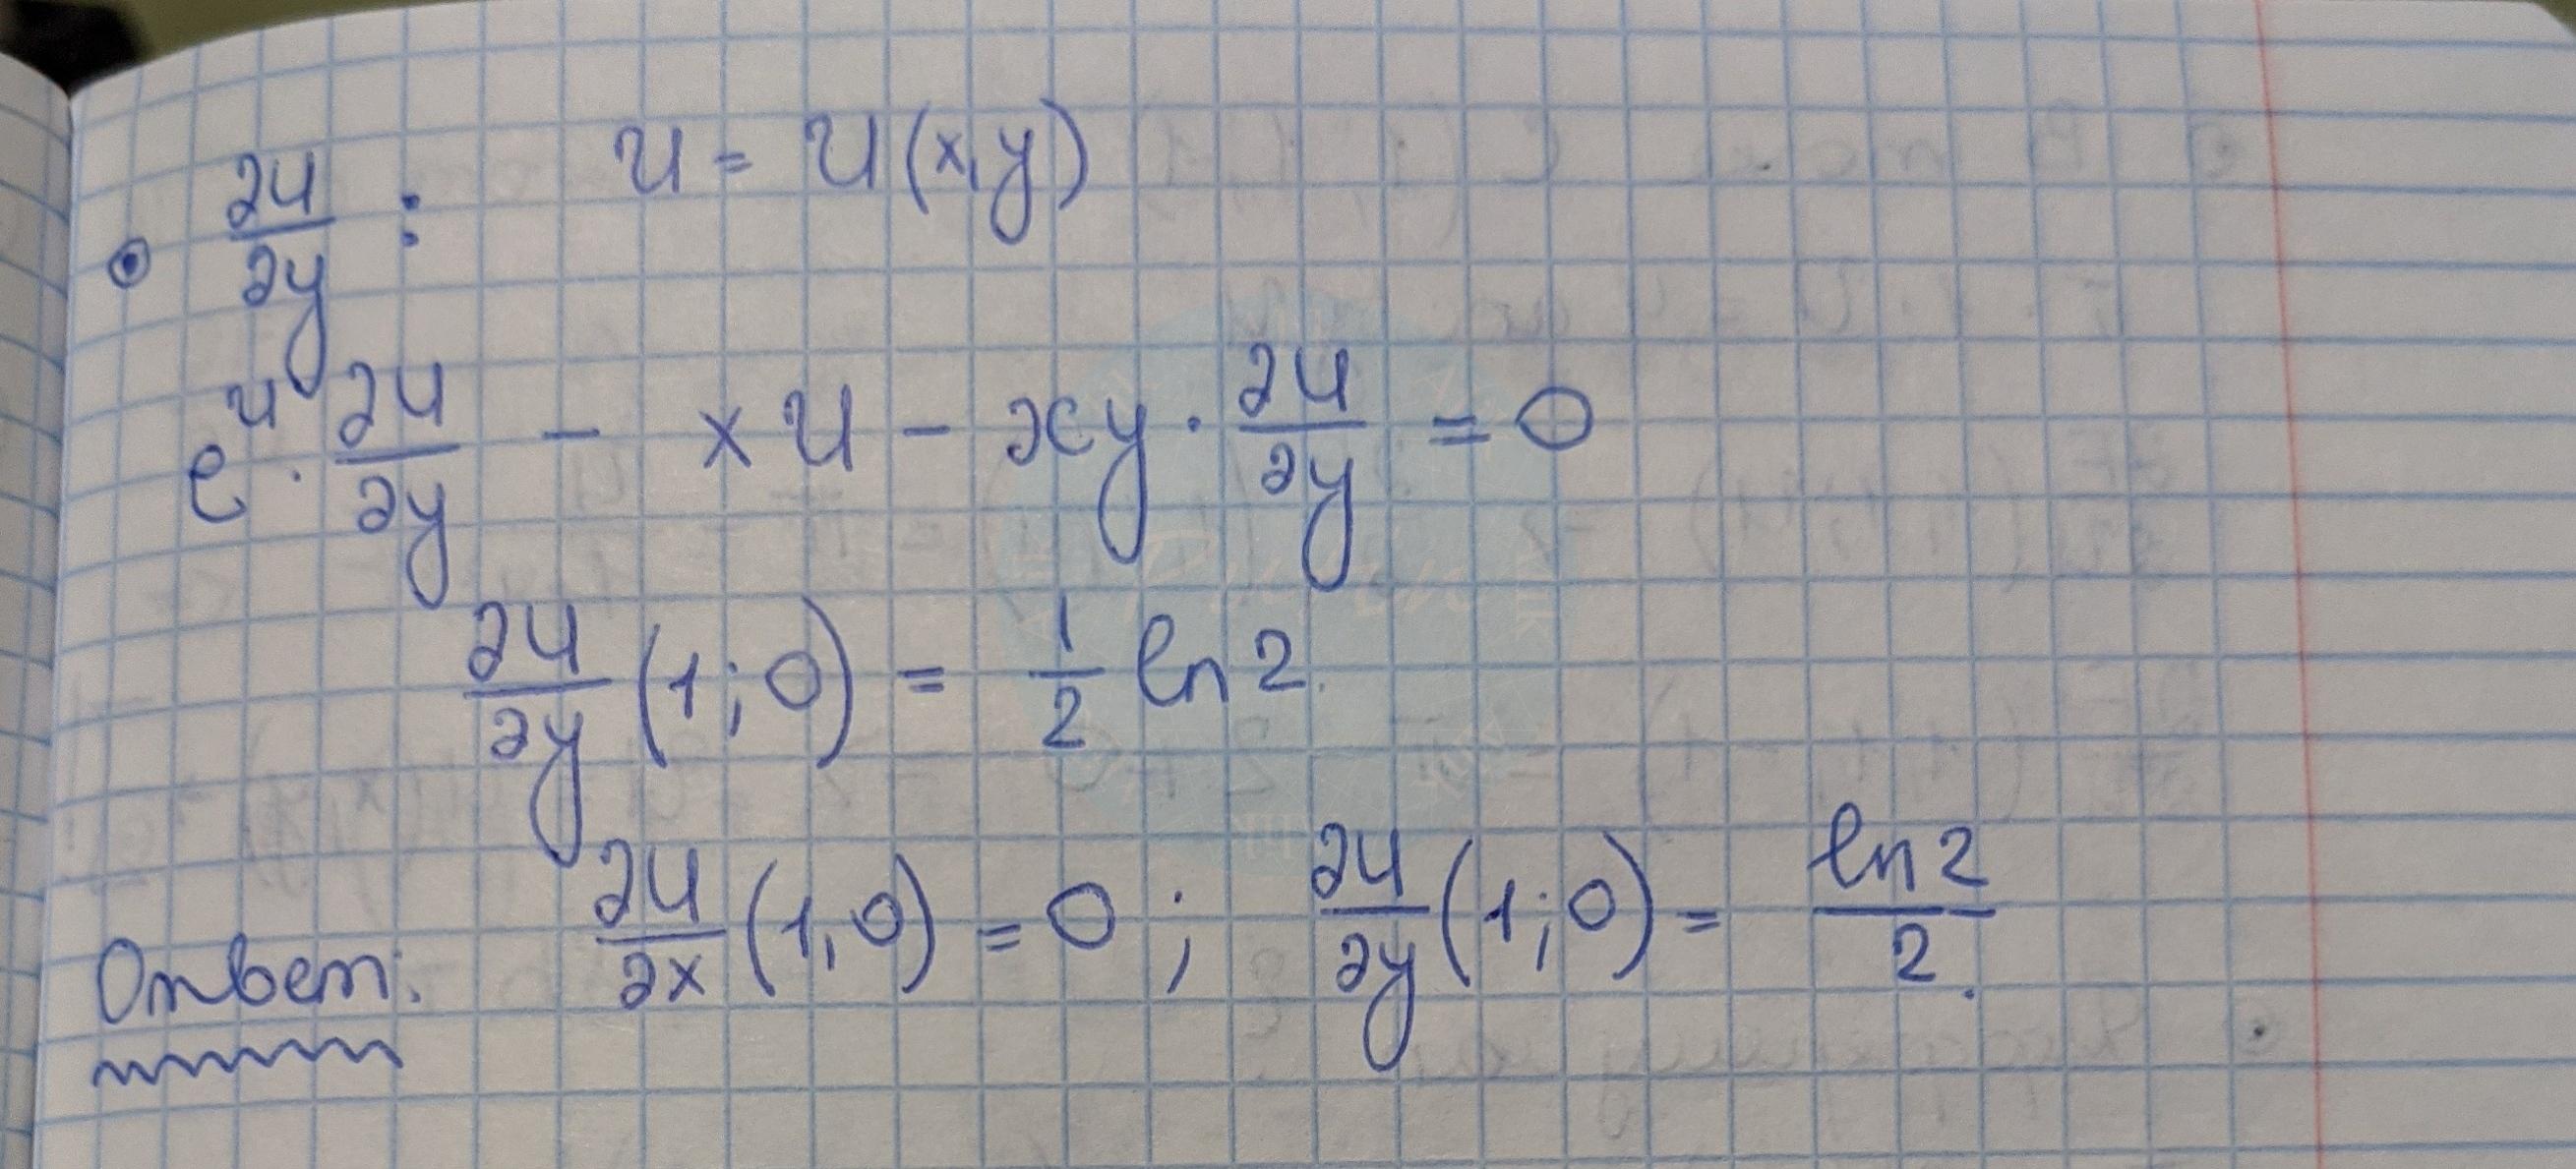 ∂u/∂y : u = u(x,y)
e^u · ∂u/∂y - xu - xy · ∂u/∂y = 0
∂u/∂y (1;0) = 1/2 ln2.
Ответ: ∂u/∂x (1,0) = 0 ; ∂u/∂y (1;0) = ln2/2.